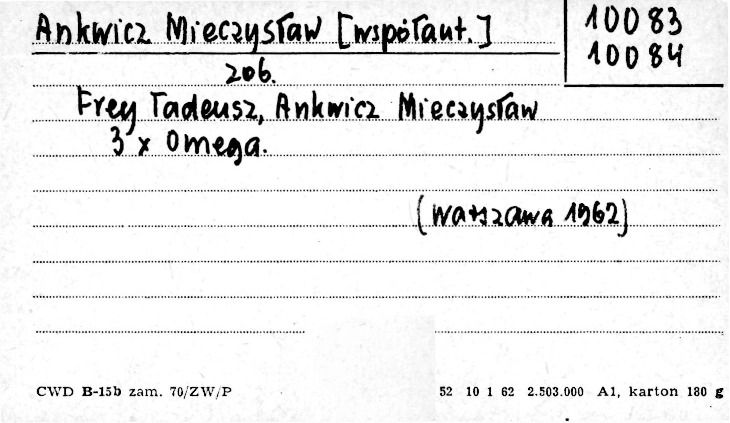 Ankwicz Mieczysław [współaut.]
10083
10084
zob.
Frey Tadeusz, Ankwicz Mieczysław
3 x Omega.
(Warszawa 1962)
CWD B-15b zam. 70/ZW/P
52 10 1 62 2.503.000 A1, karton 180 g